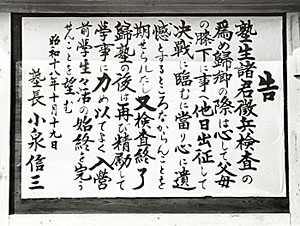 告
塾生諸君徴兵検査の
為め帰郷の際は心して父母
の膝下に事へ他日出征して
決戦に臨むに当り心に遺
憾とするところなからんことを
期せらるべし又検査終了
帰塾の後は再び精励して
学事に力め以てよく入営
前学生々活の始終を完う
せんことを望む
昭和十八年十月十九日
塾長 小泉信三